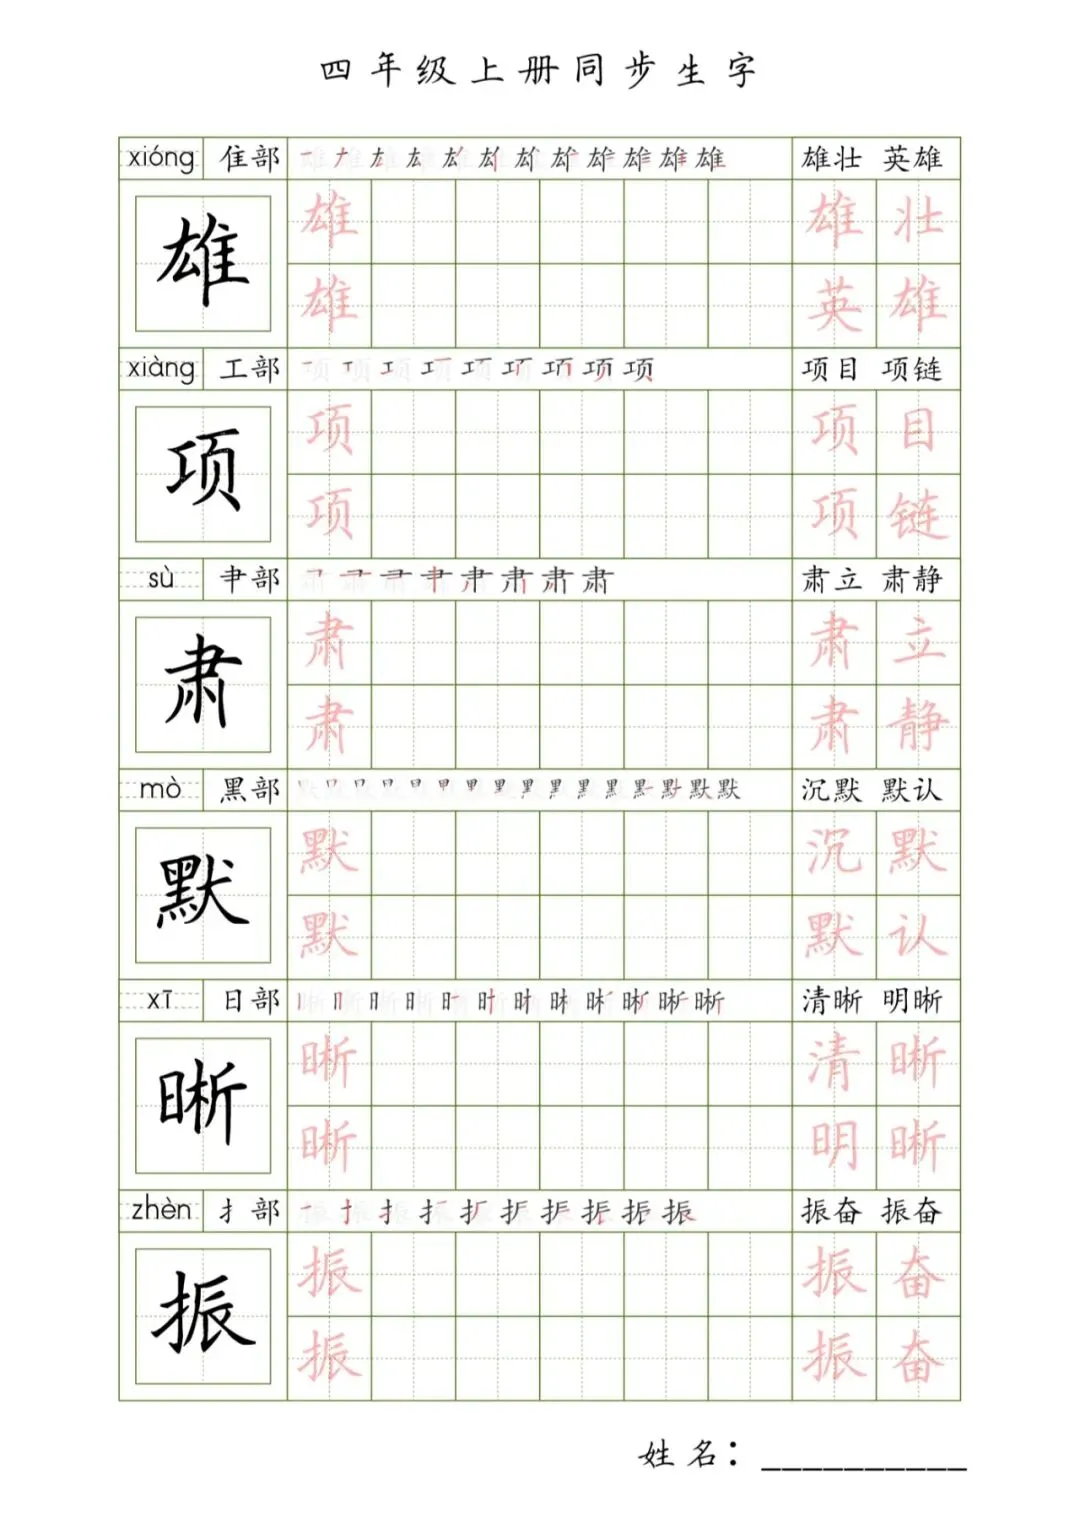 四年级上册同步生字
xióng 隹部 雄壮 英雄
雄 雄 雄 壮
雄 英 雄
xiàng 工部 项目 项链
项 项 项 目
项 项 链
sù 肀部 肃立 肃静
肃 肃 肃 立
肃 肃 静
mò 黑部 沉默 默认
默 默 沉 默
默 默 认
xī 日部 清晰 明晰
晰 晰 清 晰
晰 明 晰
zhèn 扌部 振奋 振奋
振 振 振 奋
振 振 奋
姓名：__________